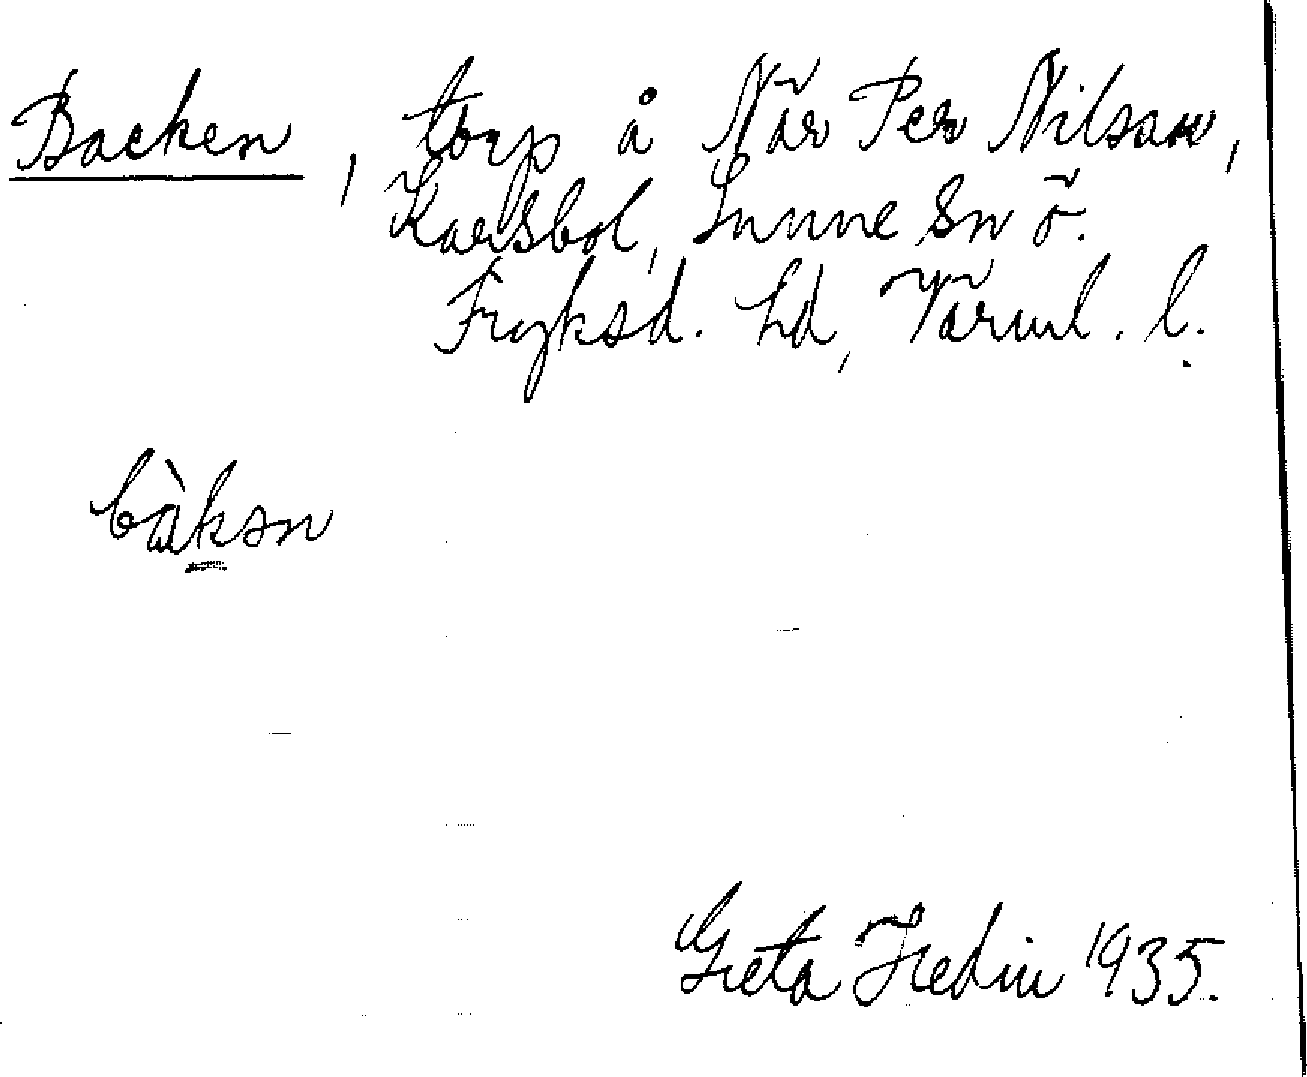 Backen, torp å När Per Nilsson,
Karlsbol, Sunne sn ö.
Fryksd. hd, Värml. l.
bàkən
Greta Hedin 1935.